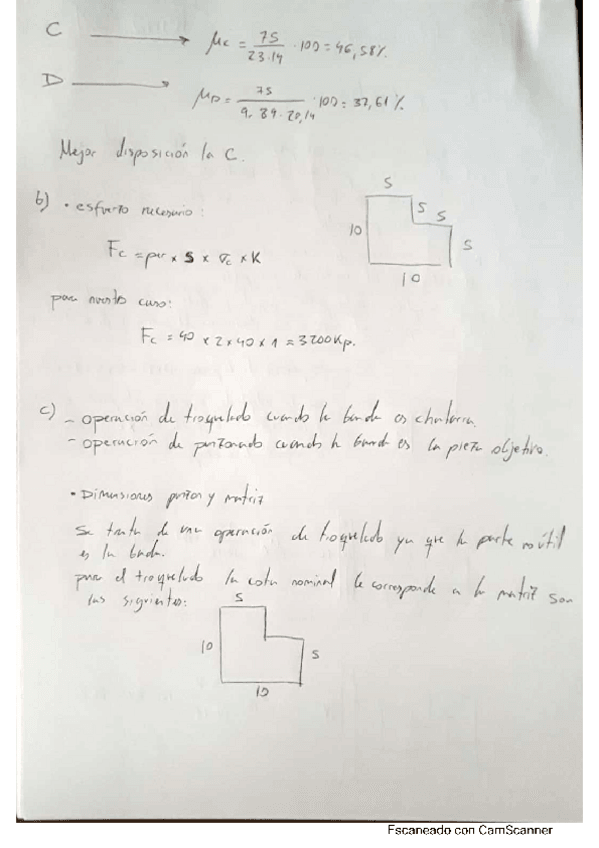 C → μc = 75 / 23·14 · 100 = 46,58%.
D → μD = 75 / 9,89·20,14 · 100 = 37,61%
Mejor disposición la C.
b) • esfuerzo necesario:
5
5
5
10
5
10
Fc = per x S x σc x K
para nuestro caso:
Fc = 40 x 2 x 40 x 1 = 3200 Kp.
c) - operación de troquelado cuando la banda es chatarra.
- operación de punzonado cuando la banda es la pieza objetivo.
• Dimensiones punzon y matriz
Se trata de una operación de troquelado ya que la parte no útil
es la banda.
para el troquelado la cota nominal le corresponde a la matriz son
las siguientes:
5
10
5
10
Escaneado con CamScanner